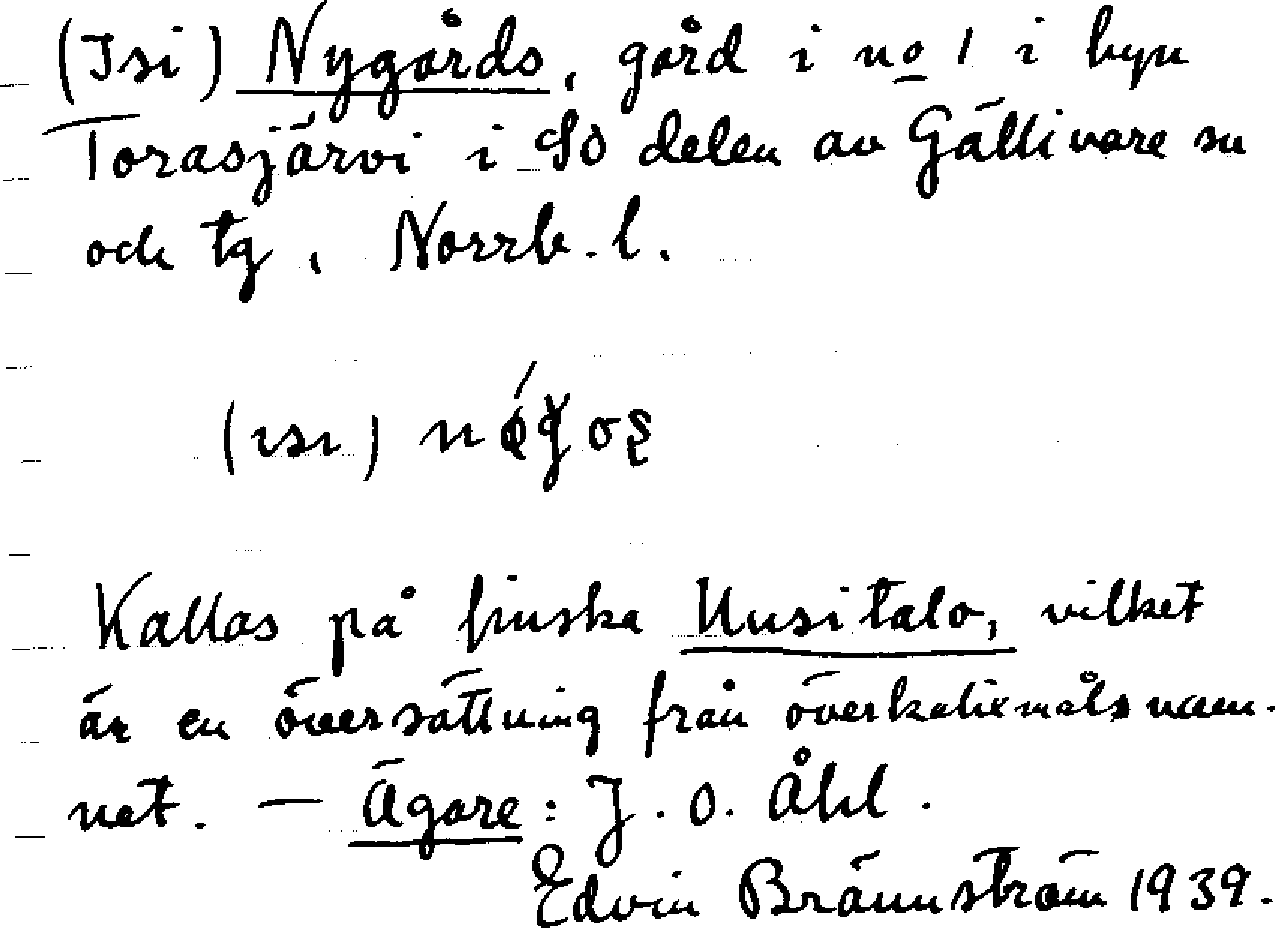 (Isi) Nygårds, gård i no 1 i byn
Torasjärvi i SO delen av Gällivare sn
och tg, Norrb. l.
(ısı)
Kallas på finska Uusitalo, vilket
är en översättning från överkalixmålsnam-
net. — Ägare: J. O. Åhl.
Edvin Brännström 1939.